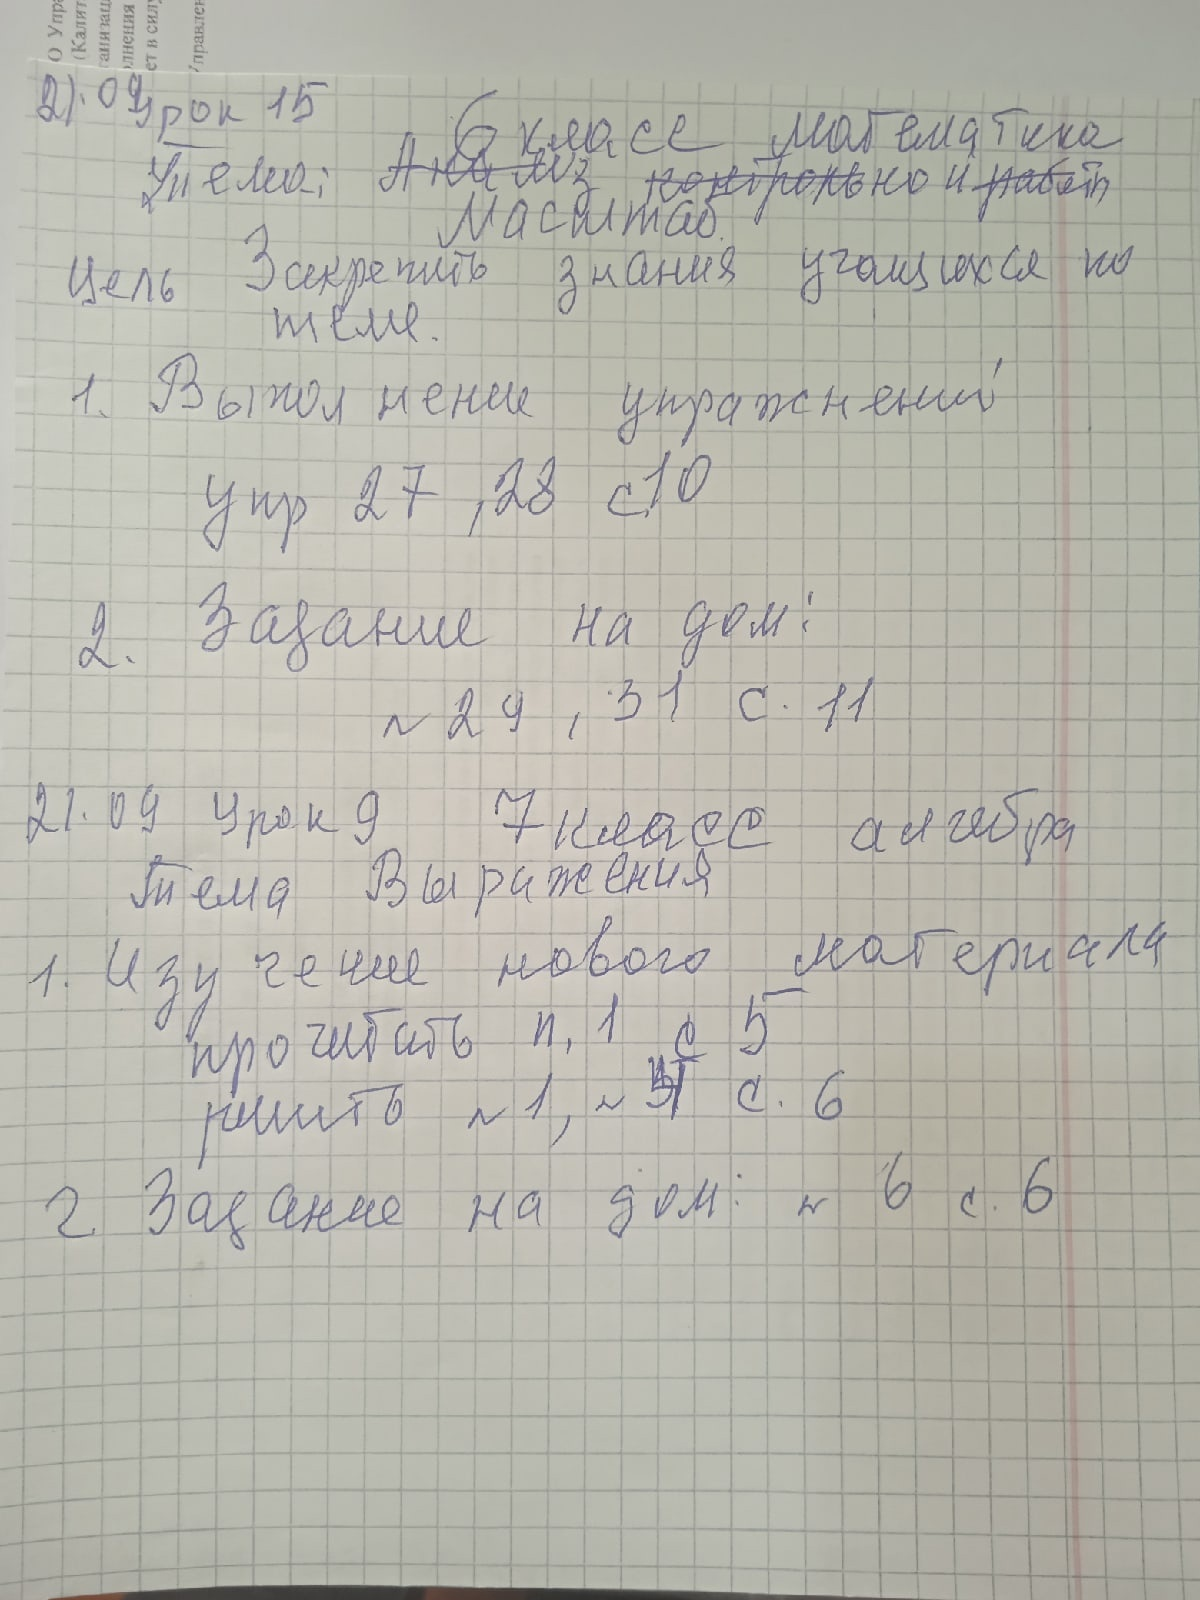 О Упра
(Калит
ганизац
олнения
ет в силу
Управлен
21.09 Урок 15
6 класс математика
Тема: Анализ контрольной работы
Масштаб.
Цель Закрепить знания учащихся по
теме.
1. Выполнение упражнений
упр 27, 28 с10
2. Задание на дом:
№ 29, 31 с. 11
21.09 Урок 9 7 класс алгебра
Тема Выражения
1. Изучение нового материала
прочитать п. 1 с 5
решить № 1, № с. 6
2. Задание на дом: № 6 с. 6